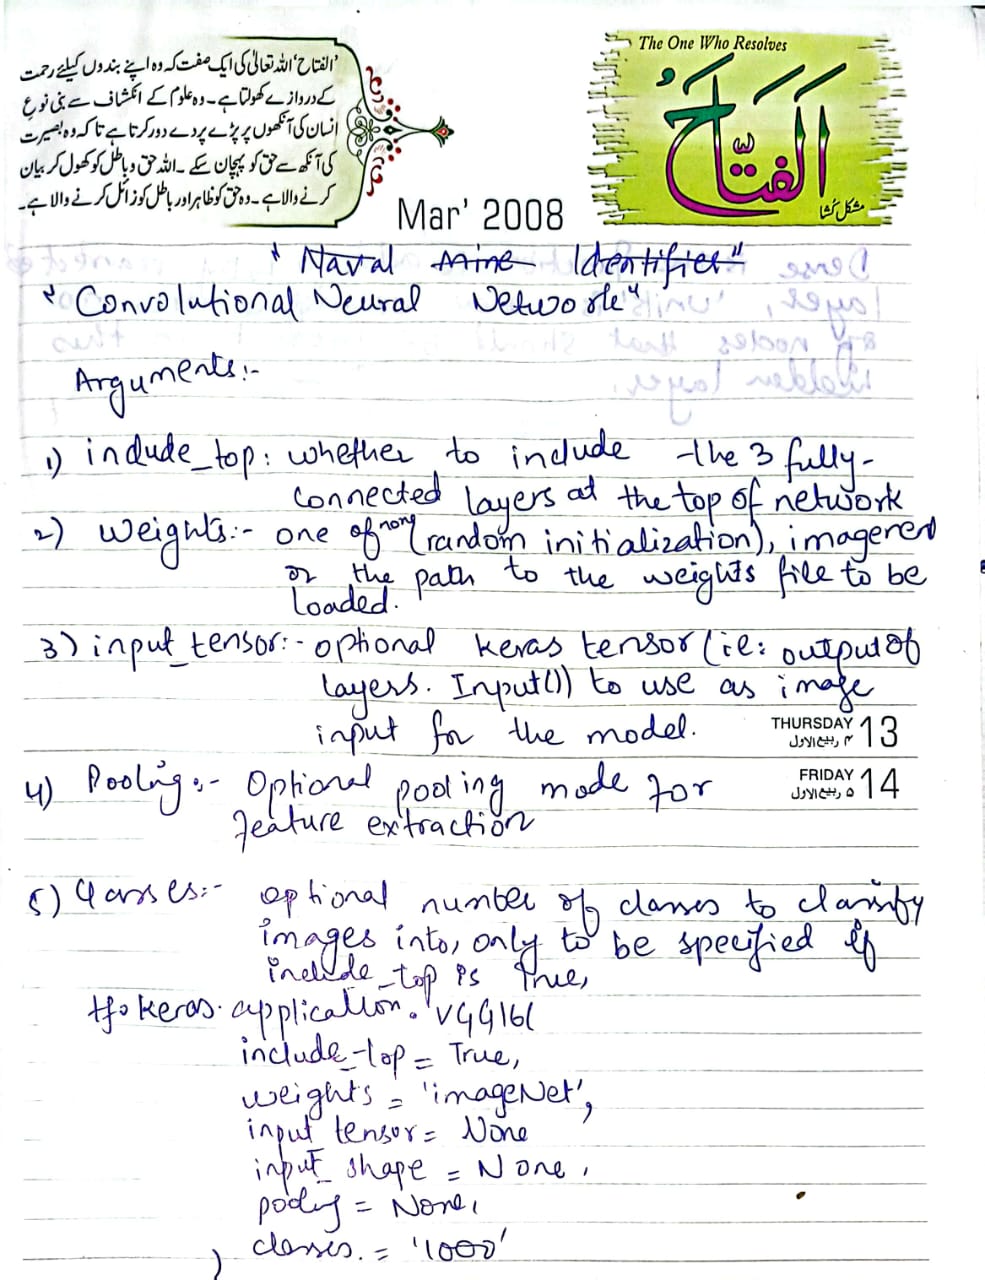 'الفتاح' اللہ تعالیٰ کی ایک صفت کہ وہ اپنے بندوں کیلئے رحمت
کے دروازے کھولتا ہے۔ وہ علوم کے انکشاف سے بنی نوع
انسان کی آنکھوں پر پڑے پردے دور کرتا ہے تاکہ وہ بصیرت
کی آنکھ سے حق کو پہچان سکے۔ اللہ حق و باطل کو کھول کر بیان
کرنے والا ہے۔ وہ حق کو ظاہر اور باطل کو زائل کرنے والا ہے۔
The One Who Resolves
اَلفَتَّاحُ
مشکل کشا
Mar' 2008
"Naval Mine Identifier"
"Convolutional Neural Network"
Arguments:-
1) include_top: whether to include the 3 fully-
connected layers at the top of network
2) Weights:- one of none (random initialization), imagenet
or the path to the weights file to be
loaded.
3) input_tensor:- optional keras tensor (ie: output of
layers. Input()) to use as image
input for the model.
THURSDAY 13
۴ ربیع الاول
FRIDAY 14
۵ ربیع الاول
4) Pooling:- Optional pooling mode for
feature extraction
5) Classes:- optional number of classes to classify
images into, only to be specified if
include_top is True,
tf. keras. application. VGG16(
include_top = True,
weights = 'imageNet',
input tensor = None
input_shape = None,
pooling = None,
classes. = '1000'
)